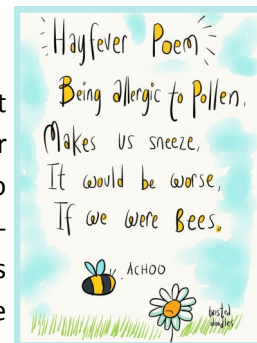 Hayfever Poem
Being allergic to Pollen,
Makes us sneeze,
It would be worse,
If we were Bees.
ACHOO
twisted
doodles